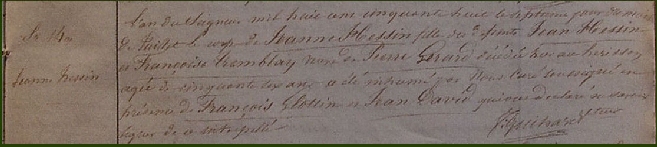 L'an du Seigneur mil huit cent cinquante huit le septieme jour du mois
de Juillet le corps de Jeanne Hessin fille de défunts Jean Hessin
Jeanne Hessin
et Françoise Tremblay veuve de Pierre Gérard décédée hier au herisson
agée de cinquante six ans a été inhumé par Nous Curé soussigné en
présence de François Glossin et Jean David qui ont déclaré ne savoir
signer de ce interpellé